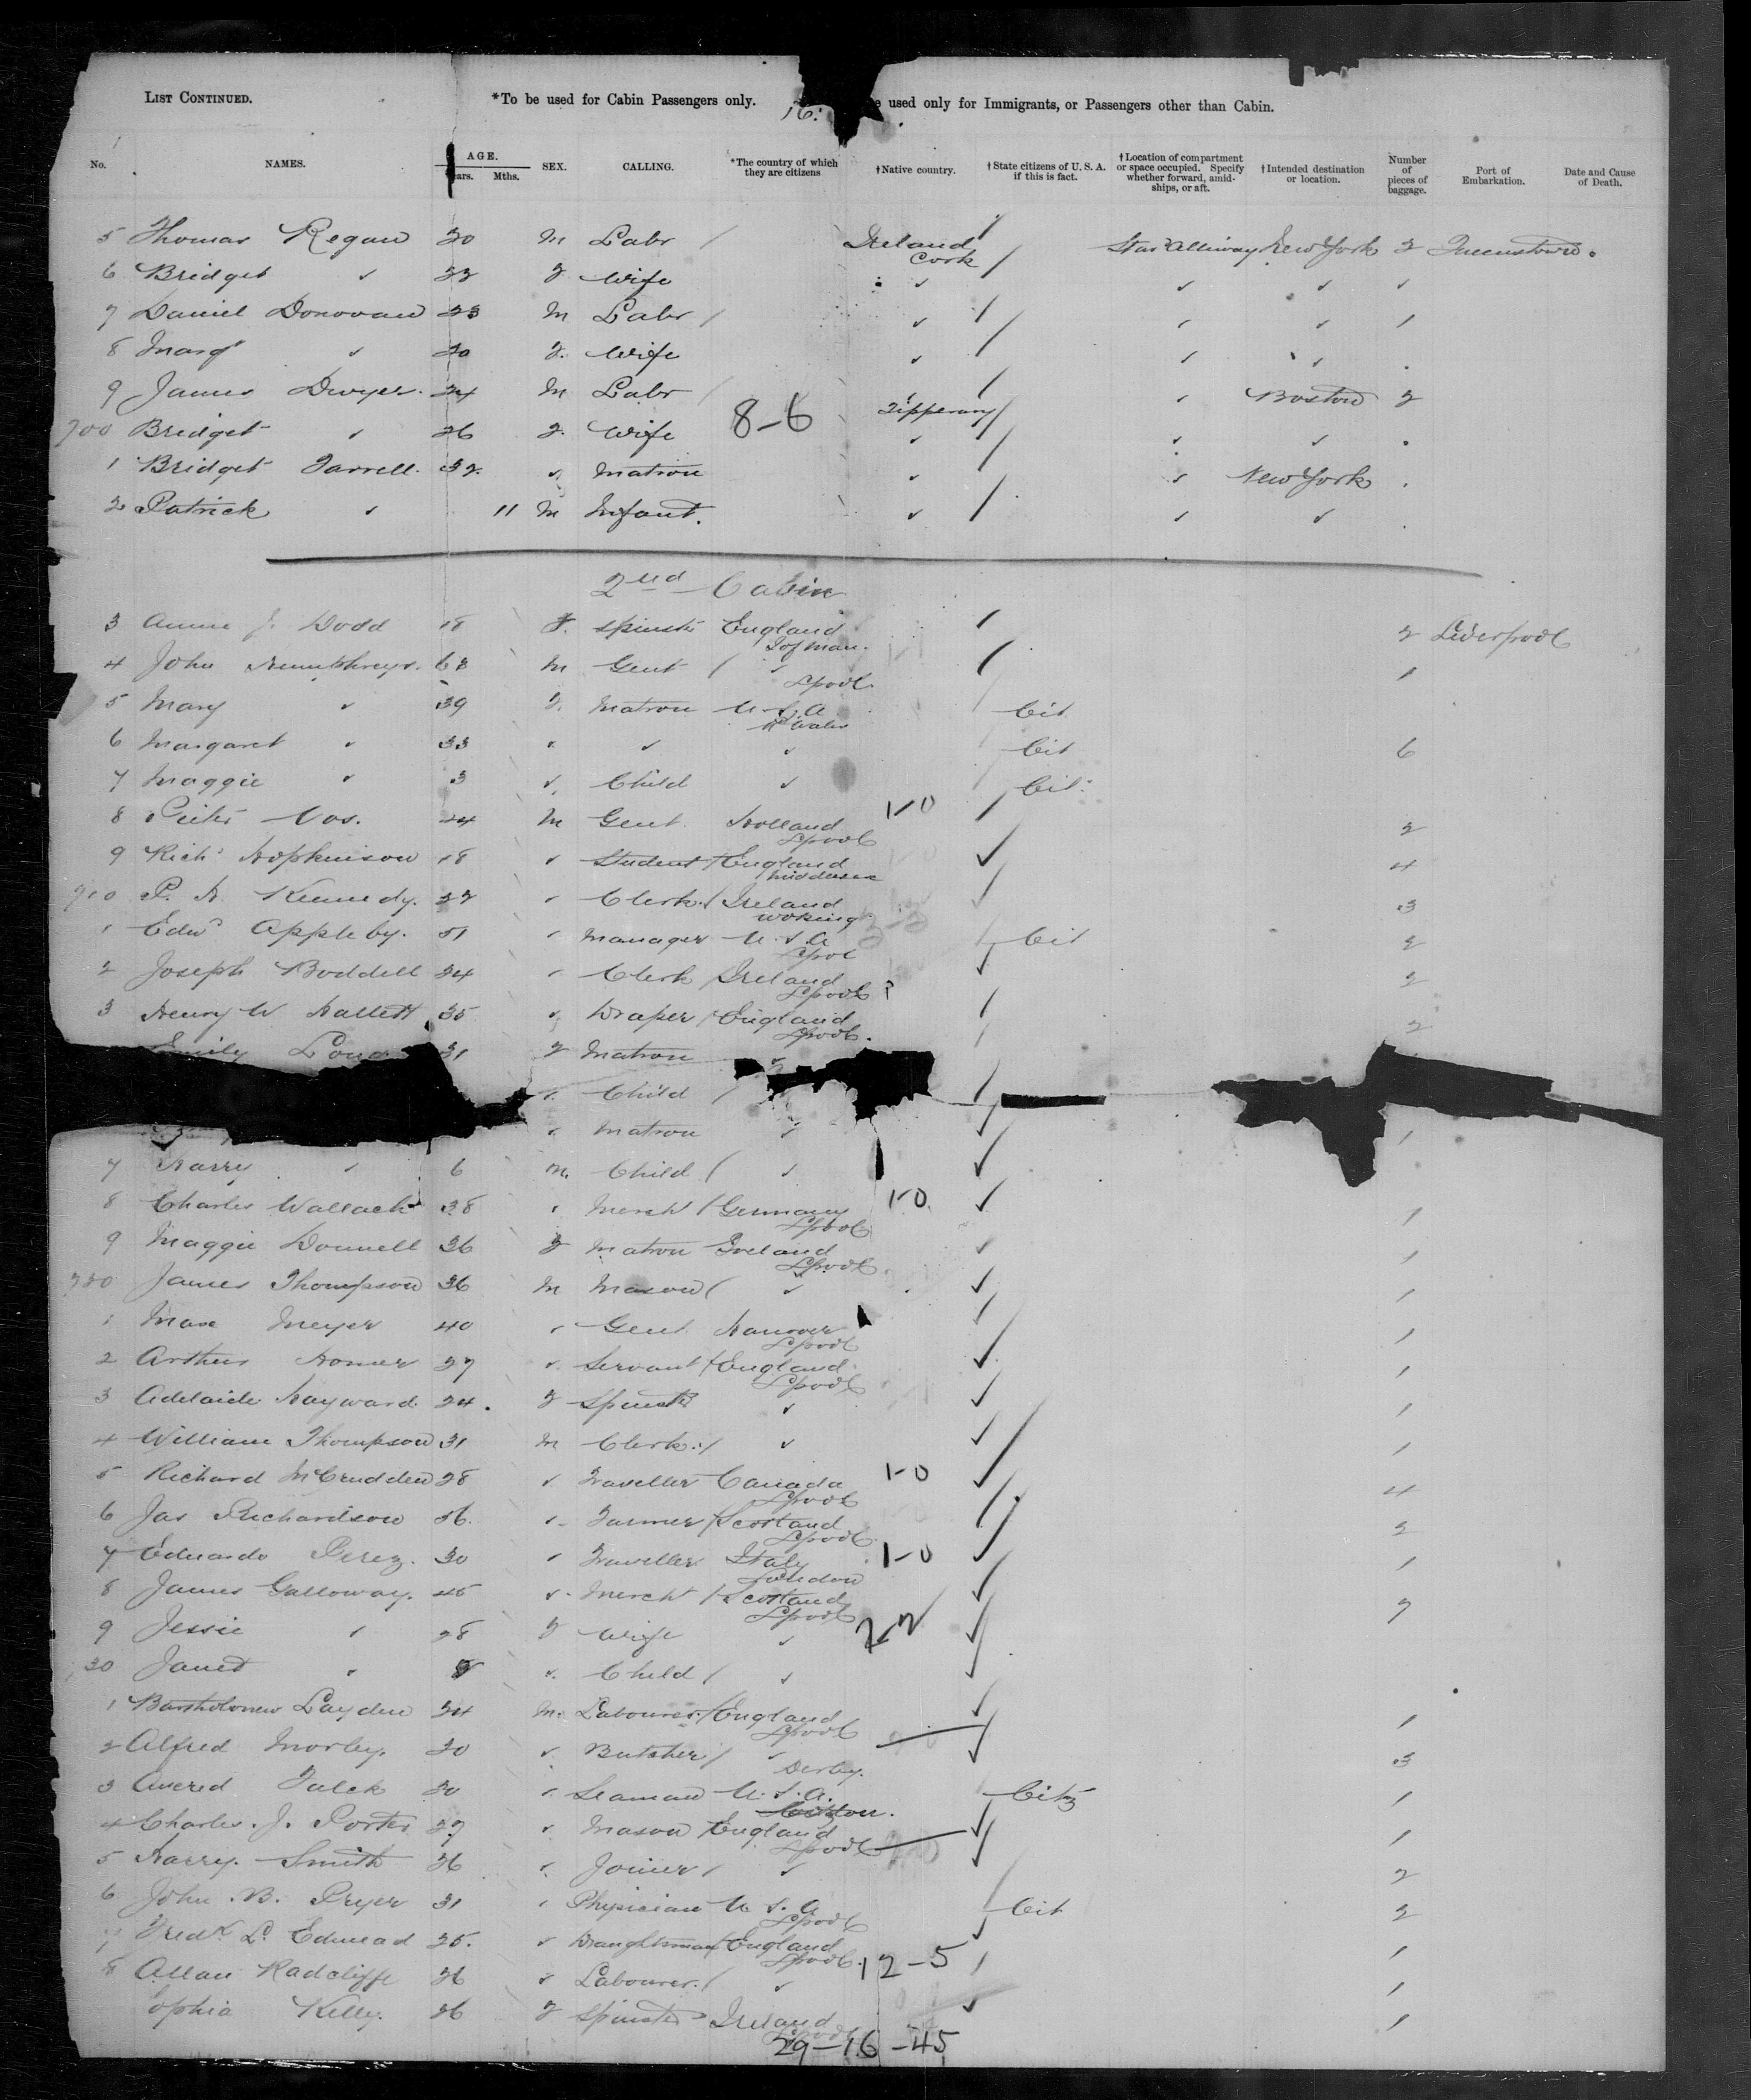 LIST CONTINUED. *To be used for Cabin Passengers only. used only for Immigrants, or Passengers other than Cabin.
16.
No. NAMES. AGE. Mths. SEX. CALLING. *The country of which they are citizens †Native country. †State citizens of U. S. A. if this is fact. †Location of compartment or space occupied. Specify whether forward, amidships, or aft. †Intended destination or location. Number of pieces of baggage. Port of Embarkation. Date and Cause of Death.
5 Thomas Regan 20 M Labr Ireland Cork New York 2 Queenstown.
6 Bridget ✓ 22 F Wife ✓ ✓ ✓ ✓
7 Daniel Donovan 23 M Labr ✓ ✓ ✓ 1
8 Margt ✓ 20 F. Wife ✓ ✓ ✓
9 James Dwyer. 24 M Labr Tipperary ✓ Boston 2
700 Bridget ✓ 26 F. Wife 8-6 ✓ ✓ ✓
1 Bridget Farrell. 32. ✓ Matron ✓ ✓ New York
2 Patrick ✓ 11 M Infant. ✓ ✓ ✓
2nd Cabin
3 Annie J. Dodd 18 F. Spinstr England I of Man. 2 Liverpool
4 John Humphreys. 63 M Gent ✓ Lpool 1
5 Mary ✓ 39 F. Matron U.S.A Cit
6 Margaret ✓ 33 ✓ ✓ ✓ Cit 6
7 Maggie ✓ 3 ✓ Child ✓ Cit
8 Pieter Vos. 44 M Gent. Holland Lpool 1-0 2
9 Richd Hopkinson 18 ✓ Student England Middlesex 4
710 P. H. Kennedy. 22 ✓ Clerk Ireland Woking 3
1 Edwd Appleby. 51 ✓ Manager U.S.A Lpool Cit 2
2 Joseph Boddell 24 ✓ Clerk Ireland Lpool ? 2
3 Henry W Hallett 35 ✓ Draper England Lpool. 2
Emily 31 F Matron ✓
✓ Child
✓ Matron ✓ 1
7 Harry ✓ 6 M. Child ✓
8 Charles Wallach 38 ✓ Mercht Germany Lpool 1-0. 1
9 Maggie Donnell 36 F Matron Ireland Lpool. 1
720 James Thompson 36 M Mason ✓ 1
1 Max Meyer 40 ✓ Gent. Hanover Lpool 1
2 Arthur Homer 27 ✓ Servant England Lpool 1
3 Adelaide Hayward 24. F Spinstr ✓ 1
4 William Thompson 31 M Clerk ✓ 1
5 Richard McCrudden 28 ✓ Traveller Canada Lpool 1-0 4
6 Jas Richardson 56. ✓ Farmer Scotland Lpool 2
7 Eduardo Perez. 30 ✓ Traveller Italy London 1-0 1
8 James Galloway. 45 ✓ Mercht Scotland Lpool 7
9 Jessie ✓ 28 F Wife ✓
30 Janet ✓ ✓ Child ✓
1 Bartholomew Layden 24 M. Labourer England Lpool 1
2 Alfred Morley. 20 ✓ Butcher ✓ Derby. 3
3 30 ✓ Seaman U.S.A. 1
4 Charles. J. Porter 27 ✓ Mason England Lpool 1
5 Harry. Smith 26 ✓ Joiner ✓ 2
6 John. B. Pryer 31 ✓ Physician U.S.A Lpool Cit 2
7 Fredk L. Edmead 25. ✓ Draughtsman England Lpool. 12-5 1
8 Allan Radcliffe 26 ✓ Labourer. ✓ 1
ophia Kelly. 26 F Spinster Ireland Lpool 1
29-16-45